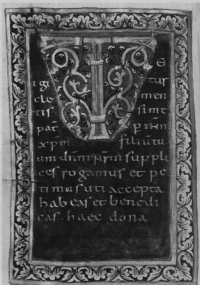 TE
igi tur
cle men
tis sime
pat p ihm
xpm filiu tu
um dnm nrm suppli
ces rogamus et pe
timus uti accepta
habeas et benedi
cas haec dona